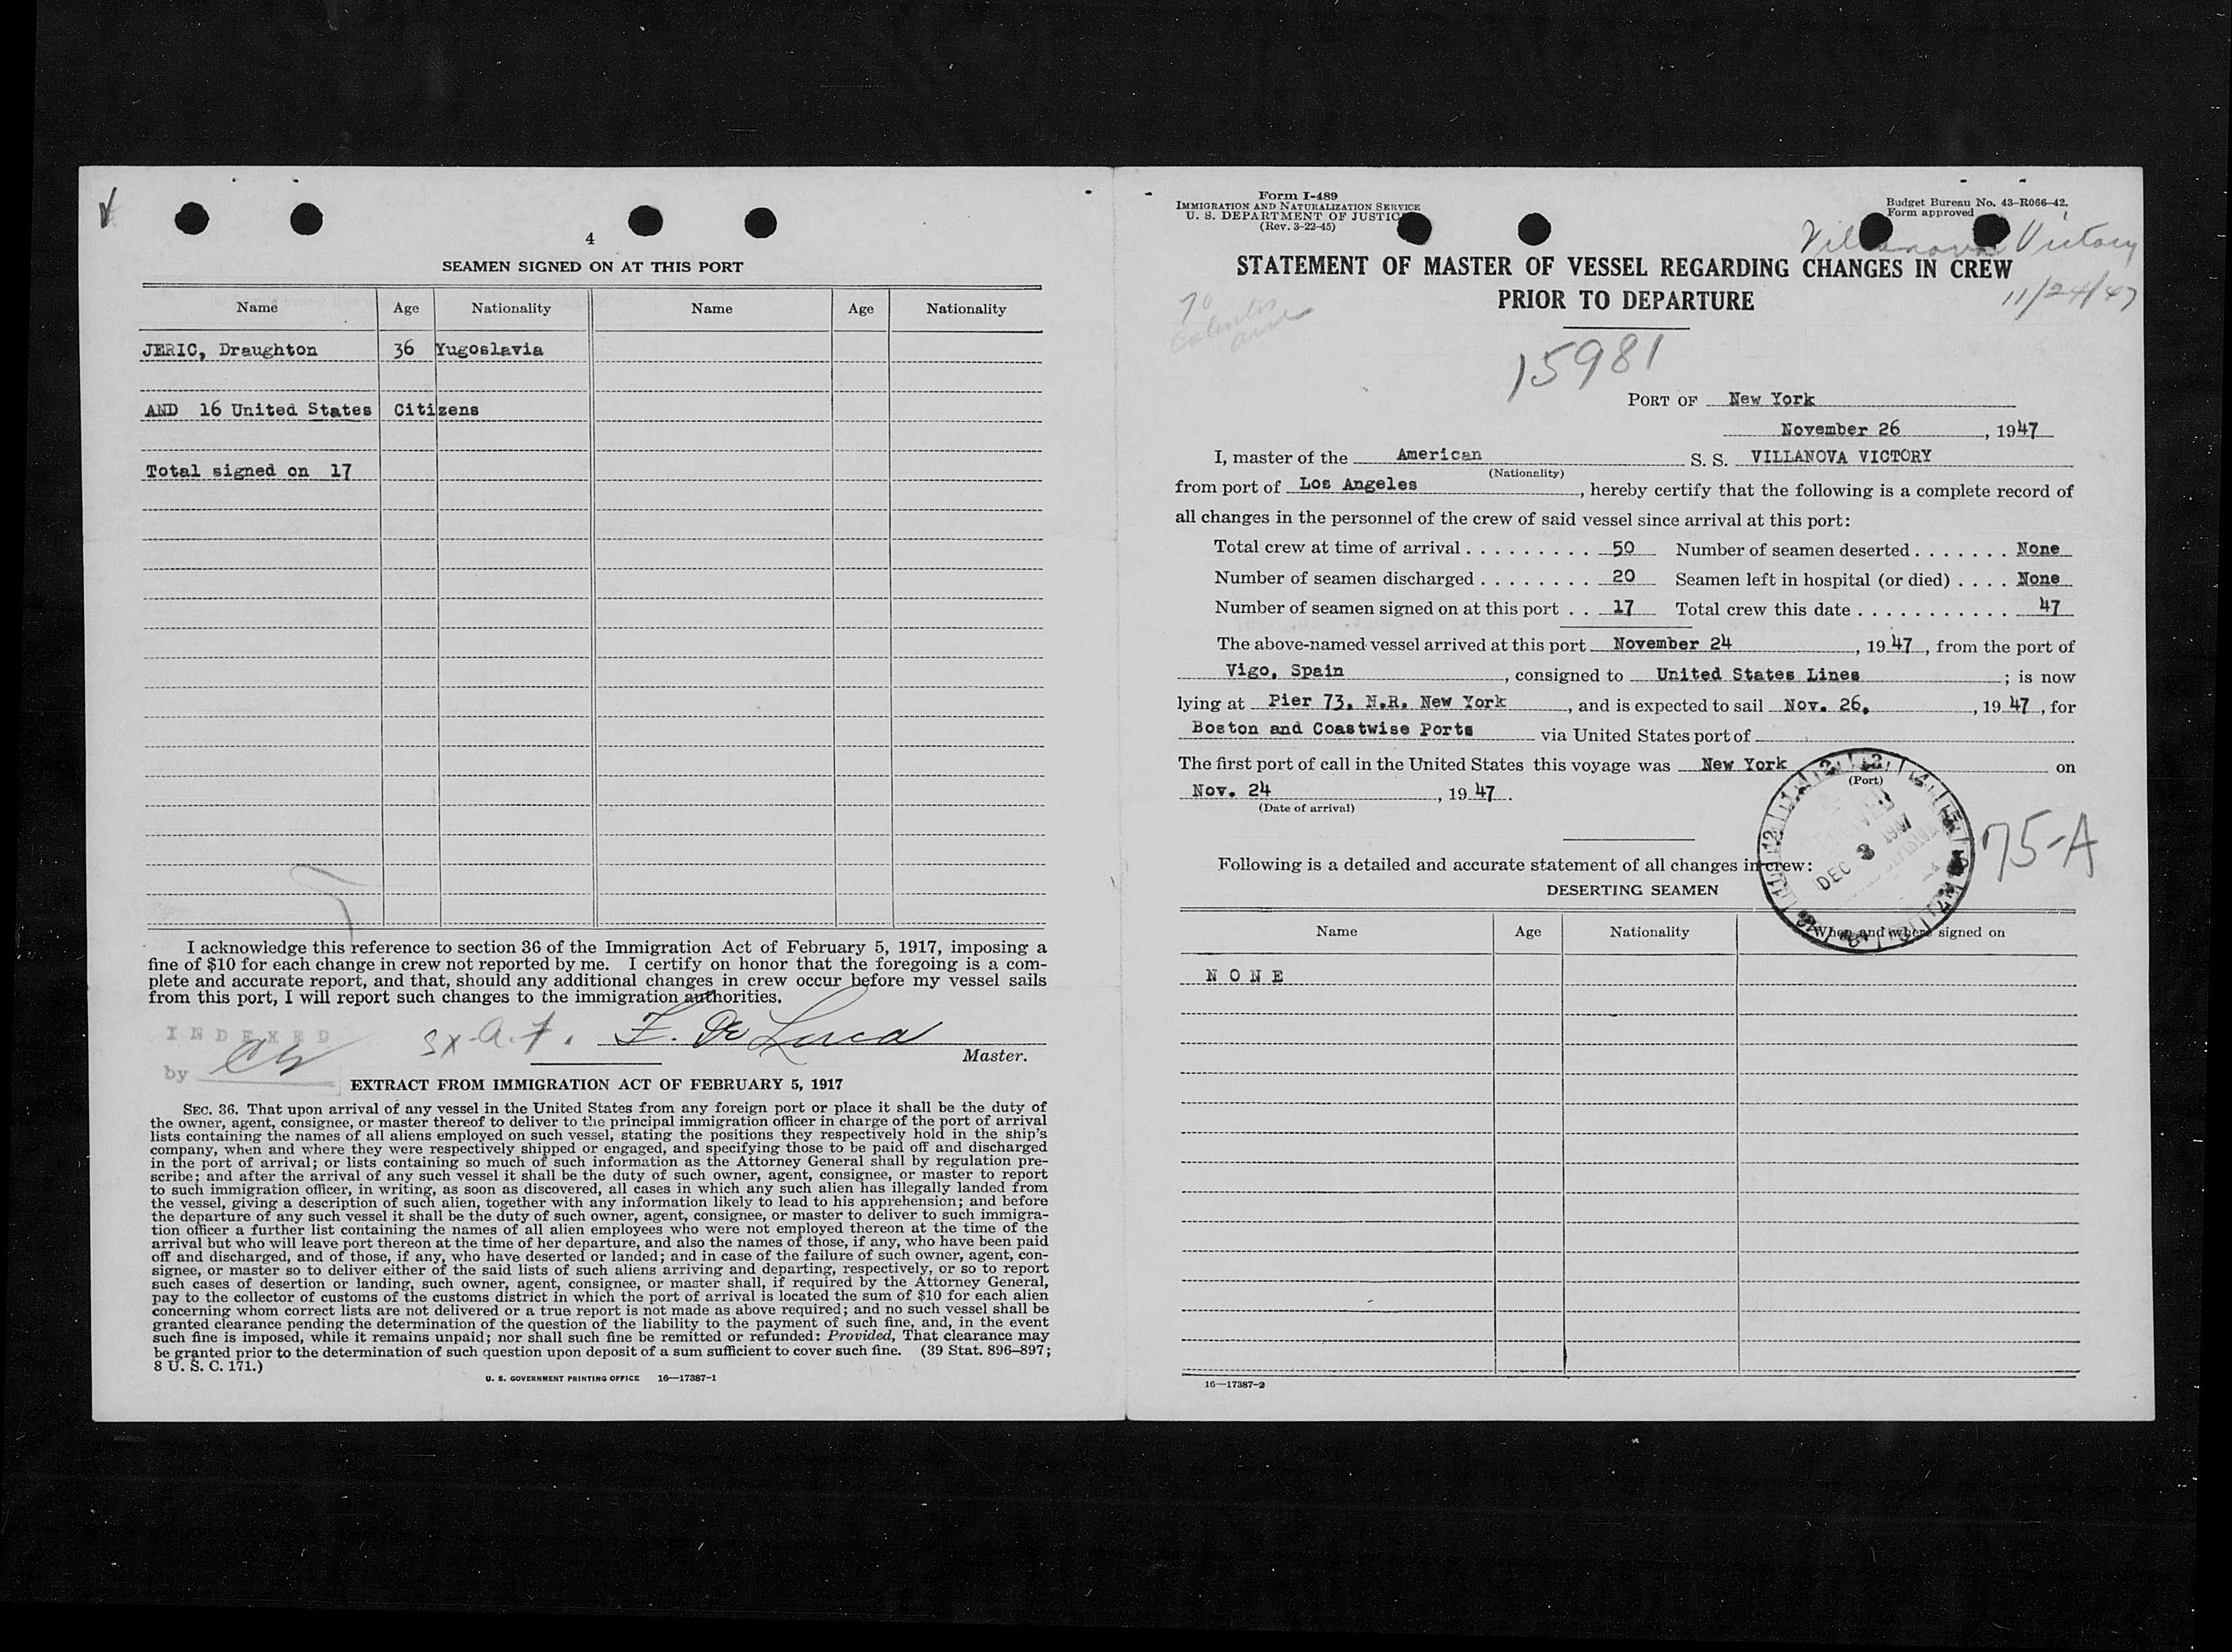 4
SEAMEN SIGNED ON AT THIS PORT
Name Age Nationality Name Age Nationality
JERIC, Draughton 36 Yugoslavia
AND 16 United States Citizens
Total signed on 17
I acknowledge this reference to section 36 of the Immigration Act of February 5, 1917, imposing a
fine of $10 for each change in crew not reported by me. I certify on honor that the foregoing is a com-
plete and accurate report, and that, should any additional changes in crew occur before my vessel sails
from this port, I will report such changes to the immigration authorities.
INDEXED
by
F. De Luca
Master.
EXTRACT FROM IMMIGRATION ACT OF FEBRUARY 5, 1917
SEC. 36. That upon arrival of any vessel in the United States from any foreign port or place it shall be the duty of
the owner, agent, consignee, or master thereof to deliver to the principal immigration officer in charge of the port of arrival
lists containing the names of all aliens employed on such vessel, stating the positions they respectively hold in the ship's
company, when and where they were respectively shipped or engaged, and specifying those to be paid off and discharged
in the port of arrival; or lists containing so much of such information as the Attorney General shall by regulation pre-
scribe; and after the arrival of any such vessel it shall be the duty of such owner, agent, consignee, or master to report
to such immigration officer, in writing, as soon as discovered, all cases in which any such alien has illegally landed from
the vessel, giving a description of such alien, together with any information likely to lead to his apprehension; and before
the departure of any such vessel it shall be the duty of such owner, agent, consignee, or master to deliver to such immigra-
tion officer a further list containing the names of all alien employees who were not employed thereon at the time of the
arrival but who will leave port thereon at the time of her departure, and also the names of those, if any, who have been paid
off and discharged, and of those, if any, who have deserted or landed; and in case of the failure of such owner, agent, con-
signee, or master so to deliver either of the said lists of such aliens arriving and departing, respectively, or so to report
such cases of desertion or landing, such owner, agent, consignee, or master shall, if required by the Attorney General,
pay to the collector of customs of the customs district in which the port of arrival is located the sum of $10 for each alien
concerning whom correct lists are not delivered or a true report is not made as above required; and no such vessel shall be
granted clearance pending the determination of the question of the liability to the payment of such fine, and, in the event
such fine is imposed, while it remains unpaid; nor shall such fine be remitted or refunded: Provided, That clearance may
be granted prior to the determination of such question upon deposit of a sum sufficient to cover such fine. (39 Stat. 896–897;
8 U. S. C. 171.)
U. S. GOVERNMENT PRINTING OFFICE 16—17387-1
Form I-489
IMMIGRATION AND NATURALIZATION SERVICE
U. S. DEPARTMENT OF JUSTIC
(Rev. 3-22-45)
Budget Bureau No. 43-R066-42.
Form approved
Villanova Victory
11/24/47
STATEMENT OF MASTER OF VESSEL REGARDING CHANGES IN CREW
PRIOR TO DEPARTURE
15981
PORT OF New York
November 26, 1947
I, master of the American S. S. VILLANOVA VICTORY
(Nationality)
from port of Los Angeles, hereby certify that the following is a complete record of
all changes in the personnel of the crew of said vessel since arrival at this port:
Total crew at time of arrival . . . . . . . . . 50 Number of seamen deserted . . . . . . . None
Number of seamen discharged . . . . . . . . 20 Seamen left in hospital (or died) . . . . None
Number of seamen signed on at this port . . 17 Total crew this date . . . . . . . . . . . 47
The above-named vessel arrived at this port November 24, 1947, from the port of
Vigo, Spain, consigned to United States Lines; is now
lying at Pier 73, N.R. New York, and is expected to sail Nov. 26, 1947, for
Boston and Coastwise Ports via United States port of
The first port of call in the United States this voyage was New York on
(Port)
Nov. 24, 1947.
(Date of arrival)
DEC 3 1947
75-A
Following is a detailed and accurate statement of all changes in crew:
DESERTING SEAMEN
Name Age Nationality When and where signed on
NONE
16—17387-2